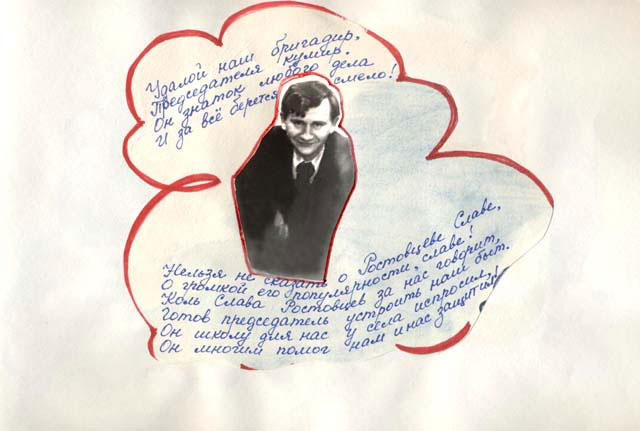 Удалой наш бригадир,
Председателя кумир.
Он знаток любого дела
И за всё берется смело!
Нельзя не сказать о Ростовцеве Славе,
О громкой его популярности, славе!
Коль Слава Ростовцев за нас говорит,
Готов председатель устроить наш быт.
Он школу для нас у села испросил,
Он многим помог нам и нас защитил!